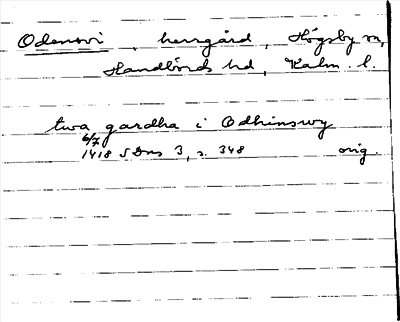 Odensvi, herrgård, Högsby sn,
Handbörds hd, Kalm. l.
twa gardha i Odhinswy
6/7
1418 SDns 3, s. 348 orig.